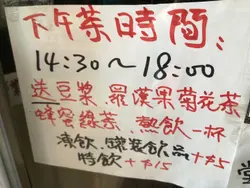 下午茶時間：
14:30～18:00
送豆漿、羅漢果菊花茶
蜂蜜綠茶、熱飲一杯
凍飲、罐裝飲品+$5
特飲+$15